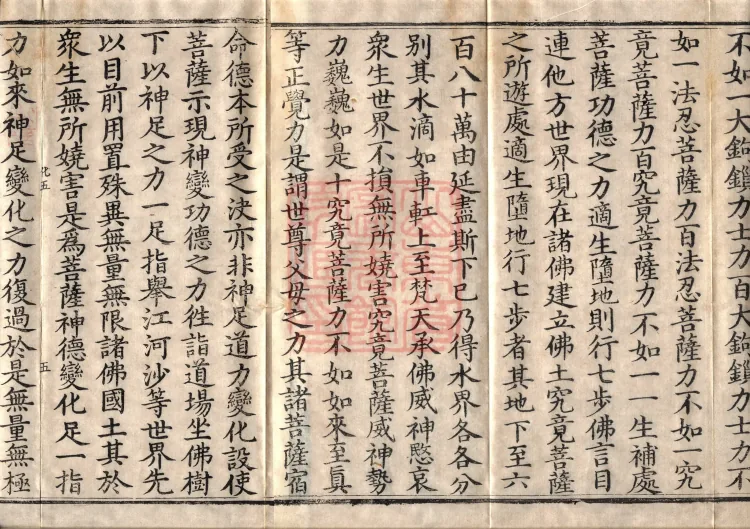 不如一大鉤鎖力士力百大鉤鎖力士力不
如一法忍菩薩力百法忍菩薩力不如一究
竟菩薩力百究竟菩薩力不如一一生補處
菩薩功德之力適生墮地則行七步佛言目
連他方世界現在諸佛建立佛土究竟菩薩
之所遊處適生墮地行七步者其地下至六
百八十萬由延盡斯下已乃得水界各各分
別其水滴如車軠上至梵天承佛威神愍哀
衆生世界不損無所嬈害究竟菩薩威神勢
力巍巍如是十究竟菩薩力不如如來至眞
等正覺力是謂世尊父母之力其諸菩薩宿
命德本所受之決亦非神足道力變化設使
菩薩示現神變功德之力徃詣道場坐佛樹
下以神足之力一足指舉江河沙等世界先
以目前用置殊異無量無限諸佛國土其於
衆生無所嬈害是爲菩薩神德變化足一指
力如來神足變化之力復過於是無量無極
五